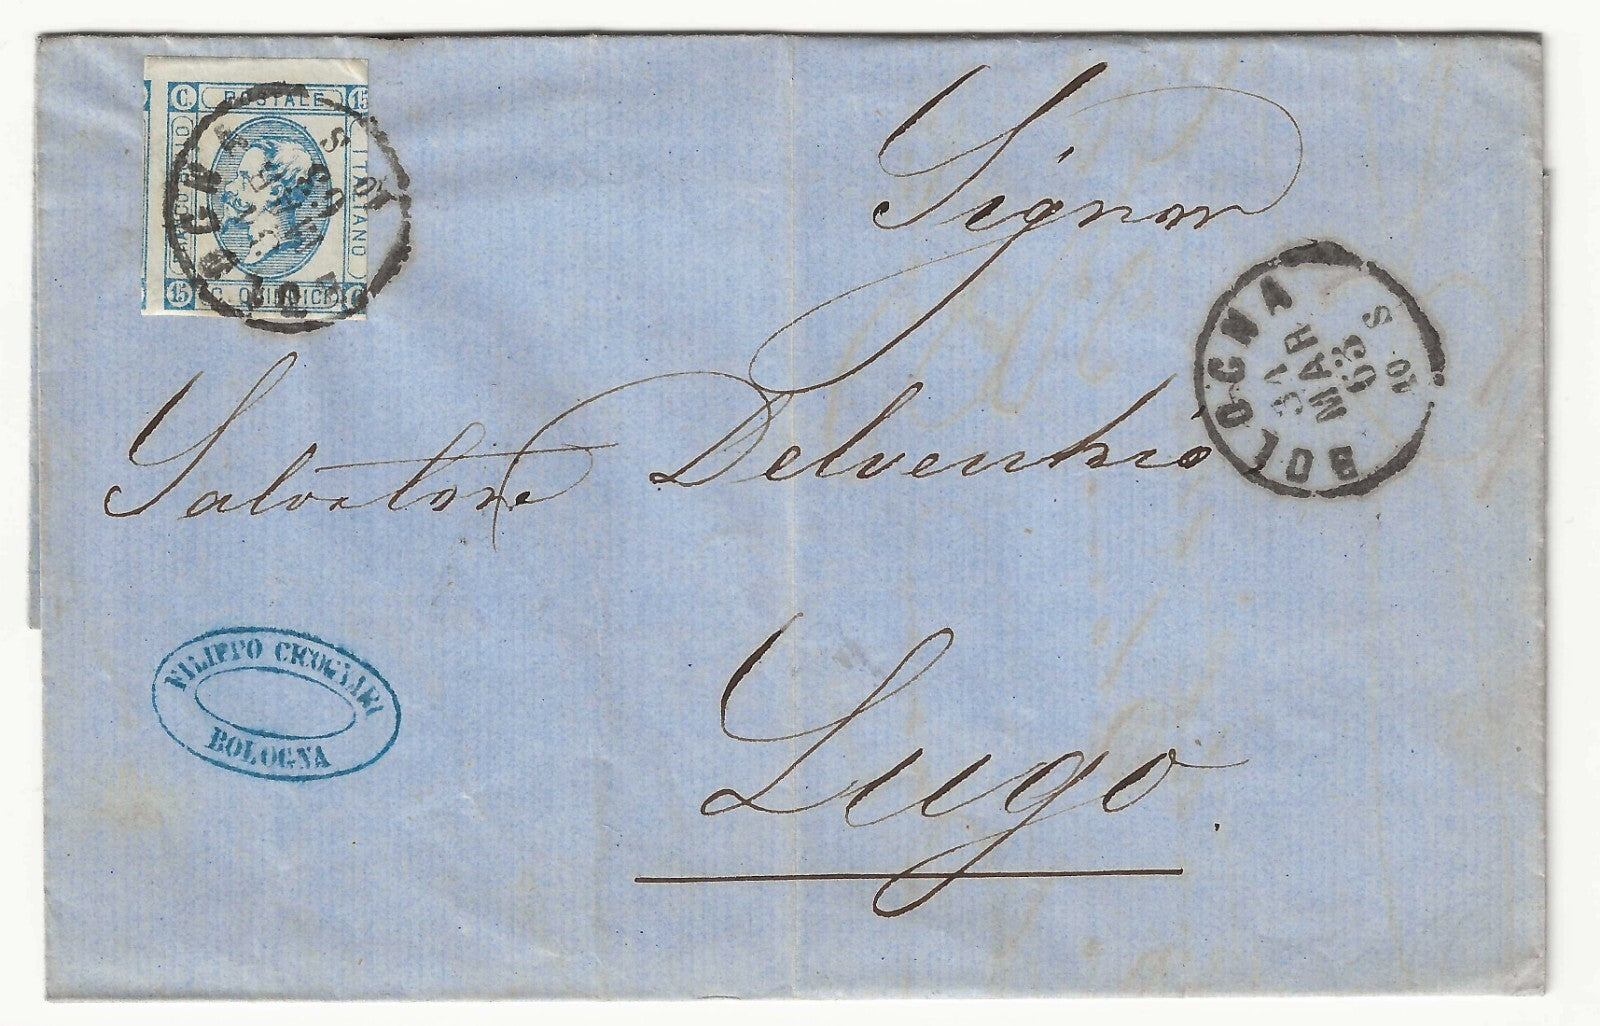 C. POSTALE 15
FRANCO BOLLO
ITALIANO
15 C. QUINDICI C.
BOLOGNA
MAR
63
10 S
Signor
Salvatore Delvenchio
Lugo.
BOLOGNA
31
MAR
63
10 S
FILIPPO CICOGNARI
BOLOGNA